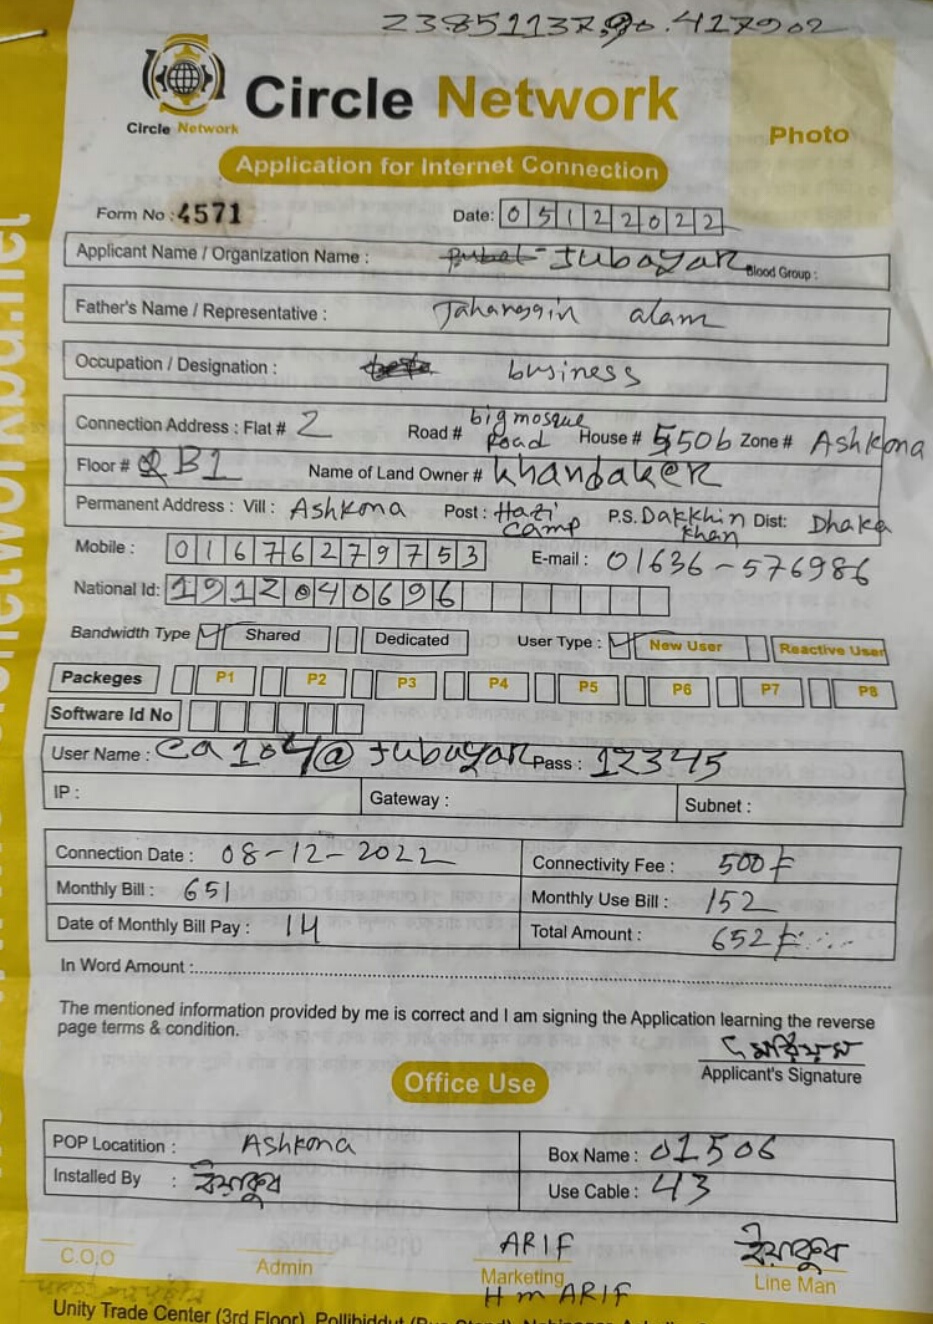 23.8511379,90.417902
Circle Network
Circle Network
Photo
Application for Internet Connection
Form No : 4571 Date: 05122022
Applicant Name / Organization Name : Jubayar Blood Group :
Father's Name / Representative : alam
Occupation / Designation : business
Connection Address : Flat # 2 Road # big mosque Road House # 5506 Zone # Ashkona
Floor # B1 Name of Land Owner # Khandaker
Permanent Address : Vill : Ashkona Post : Hazi camp P.S. Dakkhin khan Dist: Dhaka
Mobile : 01676279753 E-mail : 01636-576986
National Id: 1912040696
Bandwidth Type Shared Dedicated User Type : New User Reactive User
Packeges P1 P2 P3 P4 P5 P6 P7 P8
Software Id No
User Name : ca104@Jubayar Pass : 12345
IP : Gateway : Subnet :
Connection Date : 08-12-2022 Connectivity Fee : 500
Monthly Bill : 651 Monthly Use Bill : 152
Date of Monthly Bill Pay : 14 Total Amount : 652
In Word Amount :
The mentioned information provided by me is correct and I am signing the Application learning the reverse
page terms & condition.
Applicant's Signature
Office Use
POP Locatition : Ashkona Box Name : 01506
Installed By : ইয়াকুব Use Cable : 43
ARIF ইয়াকুব
C.O.O Admin Marketing Line Man
H m ARIF
Unity Trade Center (3rd Floor),